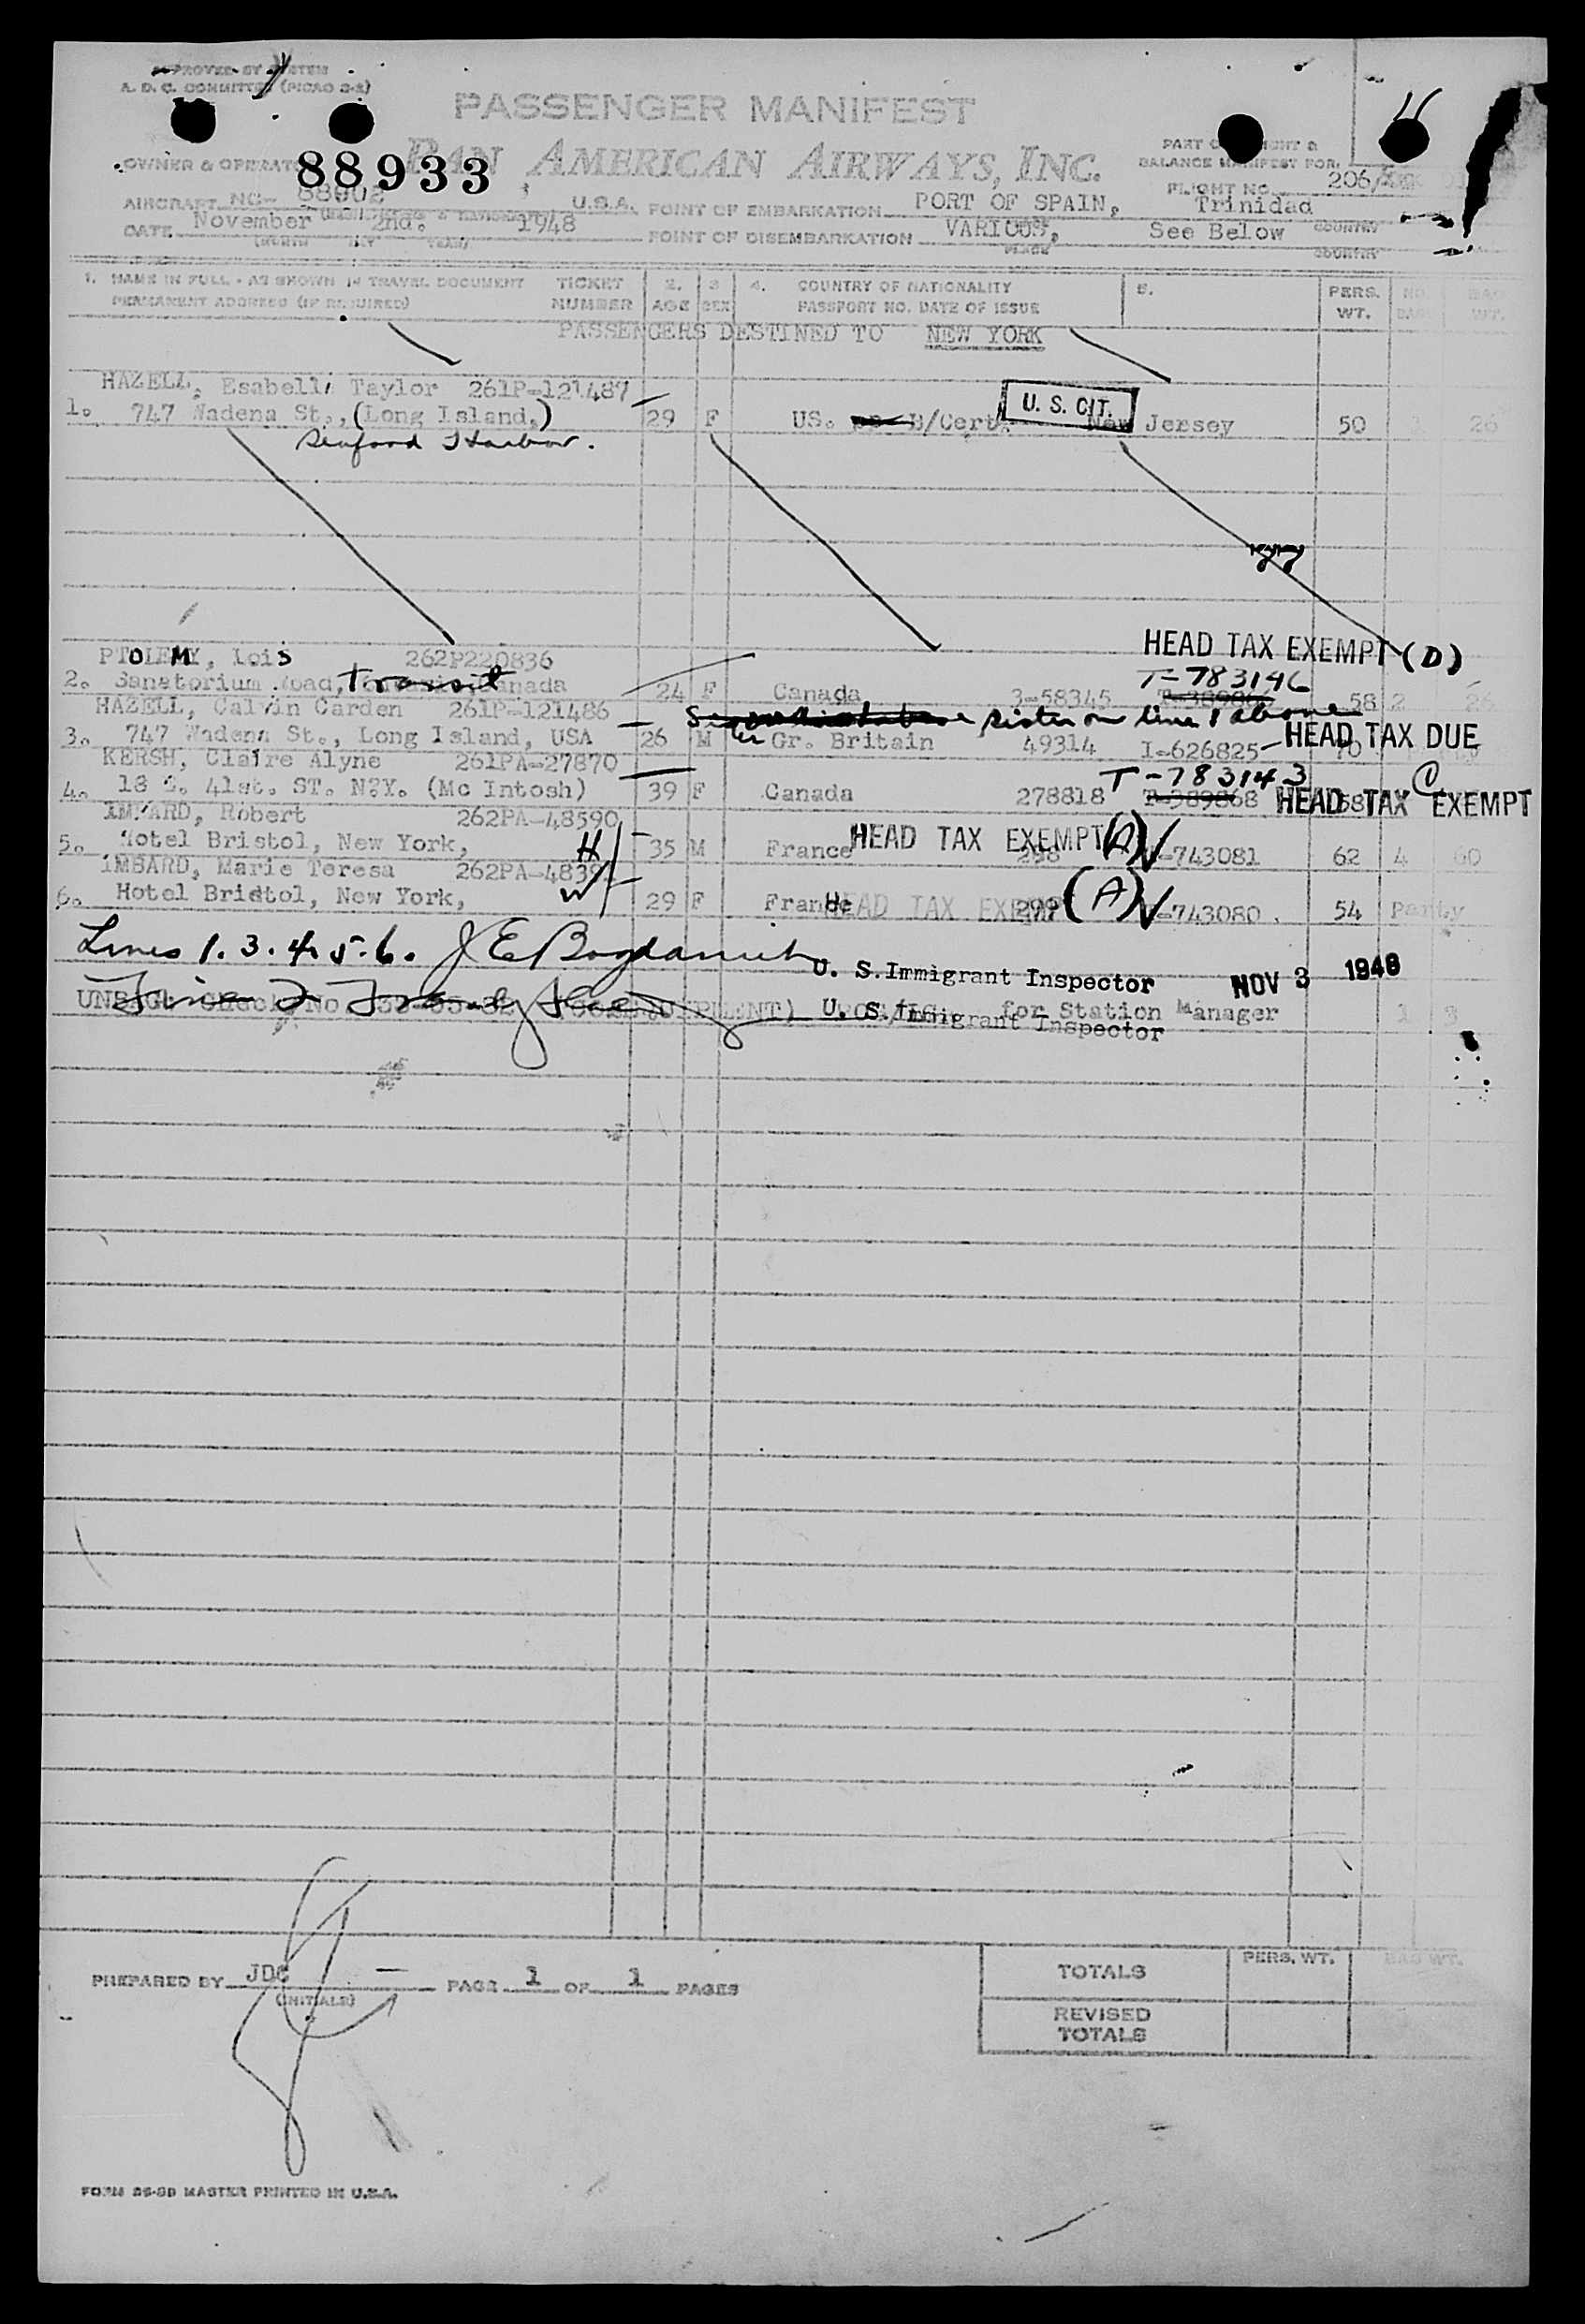 APPROVED BY SYSTEM
A. D. C. COMMITTEE (PICAO 2-2)
PASSENGER MANIFEST
PAN AMERICAN AIRWAYS, INC.
OWNER & OPERATOR
88933
PART OF
BALANCE MANIFEST FOR
FLIGHT NO. 206/
AIRCRAFT NC- 88902 U.S.A. POINT OF EMBARKATION PORT OF SPAIN, Trinidad
COUNTRY
DATE November 2nd. 1948 POINT OF DISEMBARKATION VARIOUS, See Below
(MONTH DAY YEAR) PLACE COUNTRY
1. NAME IN FULL - AS SHOWN IN TRAVEL DOCUMENT TICKET 2. 3 4. COUNTRY OF NATIONALITY 5. PERS. NO. BAG
PERMANENT ADDRESS (IF REQUIRED) NUMBER AGE SEX PASSPORT NO. DATE OF ISSUE WT. BAGS WT.
PASSENGERS DESTINED TO NEW YORK
HAZELL, Esabell Taylor 261P-121487
1. 747 Wadena St., (Long Island,) 29 F US. B/Cert. U. S. CIT. New Jersey 50 26
HEAD TAX EXEMPT (D)
PTOLEMY, Lois 262P220836
T-783146
2. Sanatorium Road, Canada Transit 24 F Canada 3-58345 58 2 26
HAZELL, Calvin Carden 261P-121486
sister on line 1 above
3. 747 Wadena St., Long Island, USA 26 M Gr. Britain 49314 I-626825- 70 HEAD TAX DUE
KERSH, Claire Alyne 261PA-27870
T-783143 C
4. 18 E. 41st. ST. N?Y. (Mc Intosh) 39 F Canada 278818 T-389868 58 HEAD TAX EXEMPT
IMBARD, Robert 262PA-48590
5. Hotel Bristol, New York, H 35 M France HEAD TAX EXEMPT (A) 298 T-743081 62 4 60
IMBARD, Marie Teresa 262PA-4839
6. Hotel Bristol, New York, W 29 F France HEAD TAX EXEMPT (A) 299 T-743080. 54 Party
Lines 1. 3. 4. 5. 6. J E U. S. Immigrant Inspector NOV 3 1948
Line 2 U. S. Immigrant Inspector
for Station Manager 1 3
PREPARED BY JDC PAGE 1 OF 1 PAGES
(INITIALS)
TOTALS PERS. WT. BAG WT.
REVISED
TOTALS
FORM 26-9D MASTER PRINTED IN U.S.A.